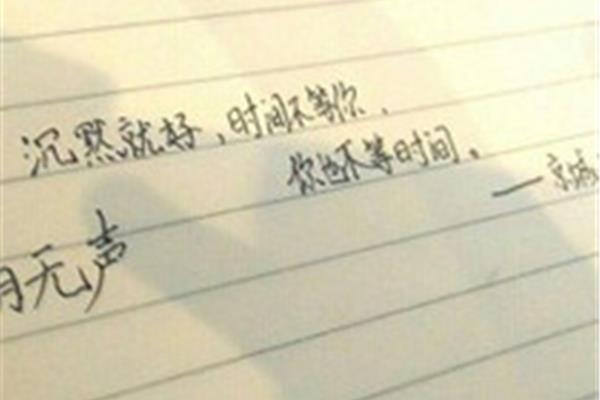 沉默就好,时间不等你.
你也不等时间。
——京城
月无声